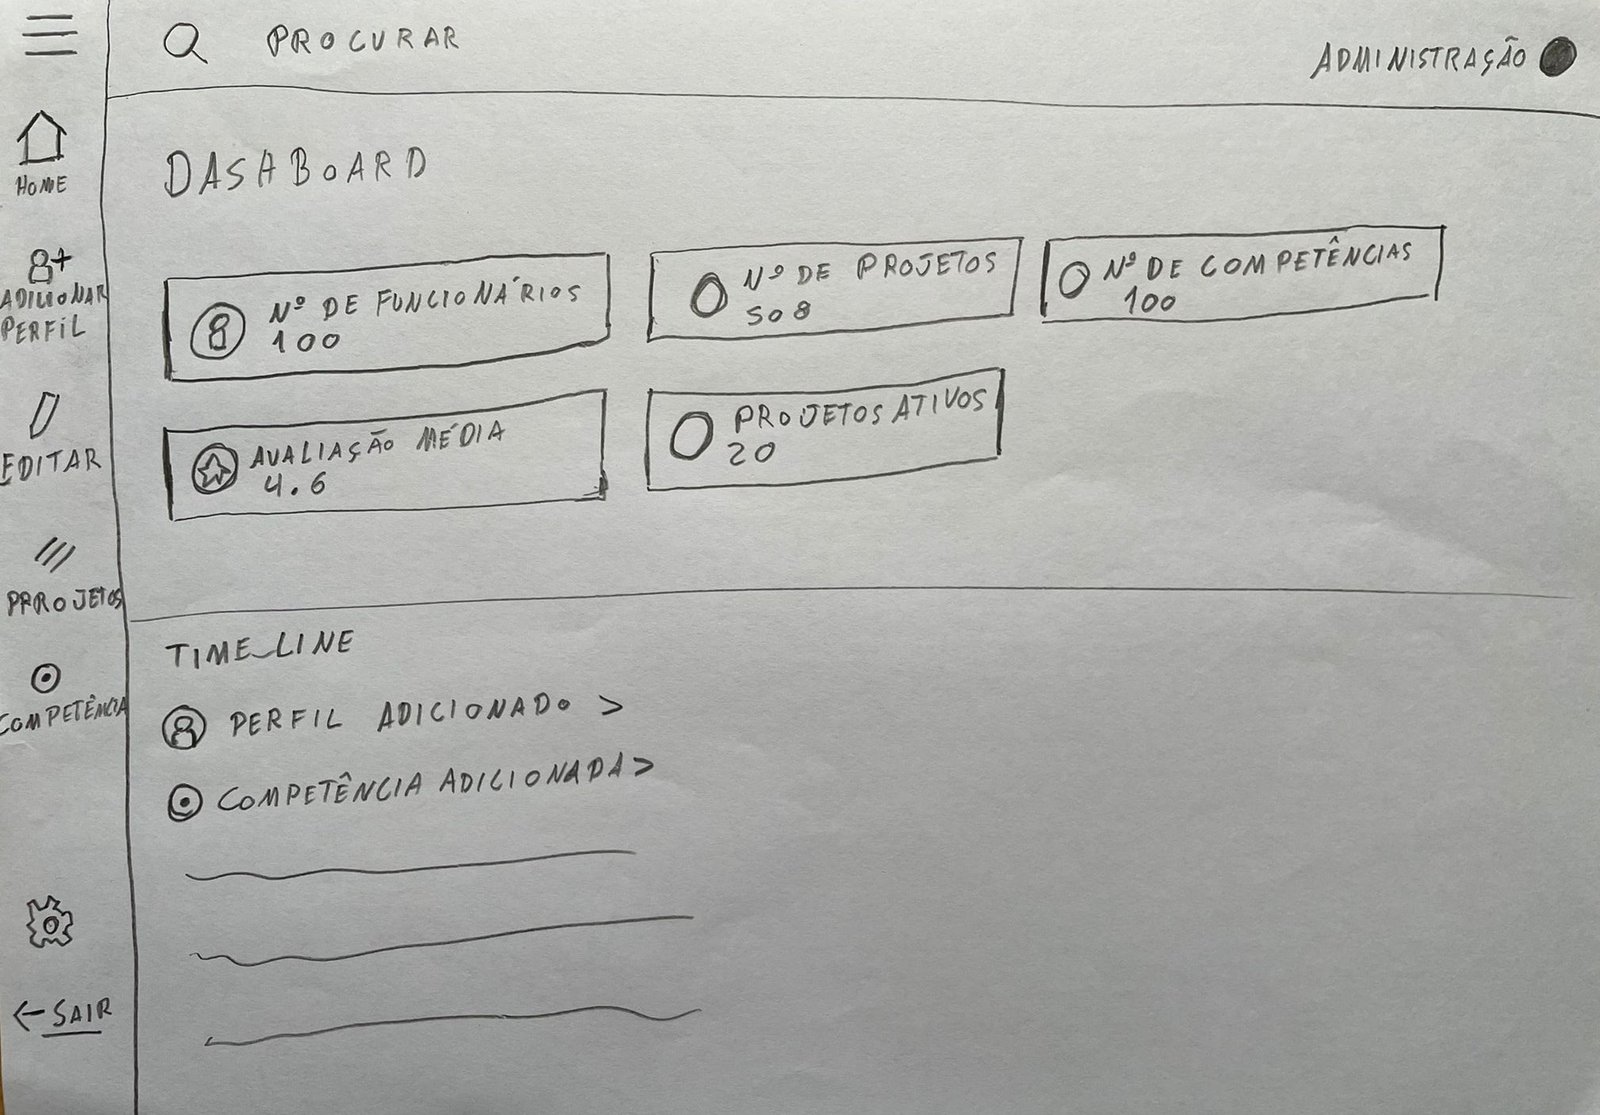 PROCURAR
ADMINISTRAÇÃO
HOME
ADICIONAR
PERFIL
EDITAR
PRROJETOS
COMPETÊNCIA
SAIR
DASHBOARD
Nº DE FUNCIONÁRIOS
100
Nº DE PROJETOS
508
Nº DE COMPETÊNCIAS
100
AVALIAÇÃO MÉDIA
4.6
PROJETOS ATIVOS
20
TIME_LINE
PERFIL ADICIONADO >
COMPETÊNCIA ADICIONADA >